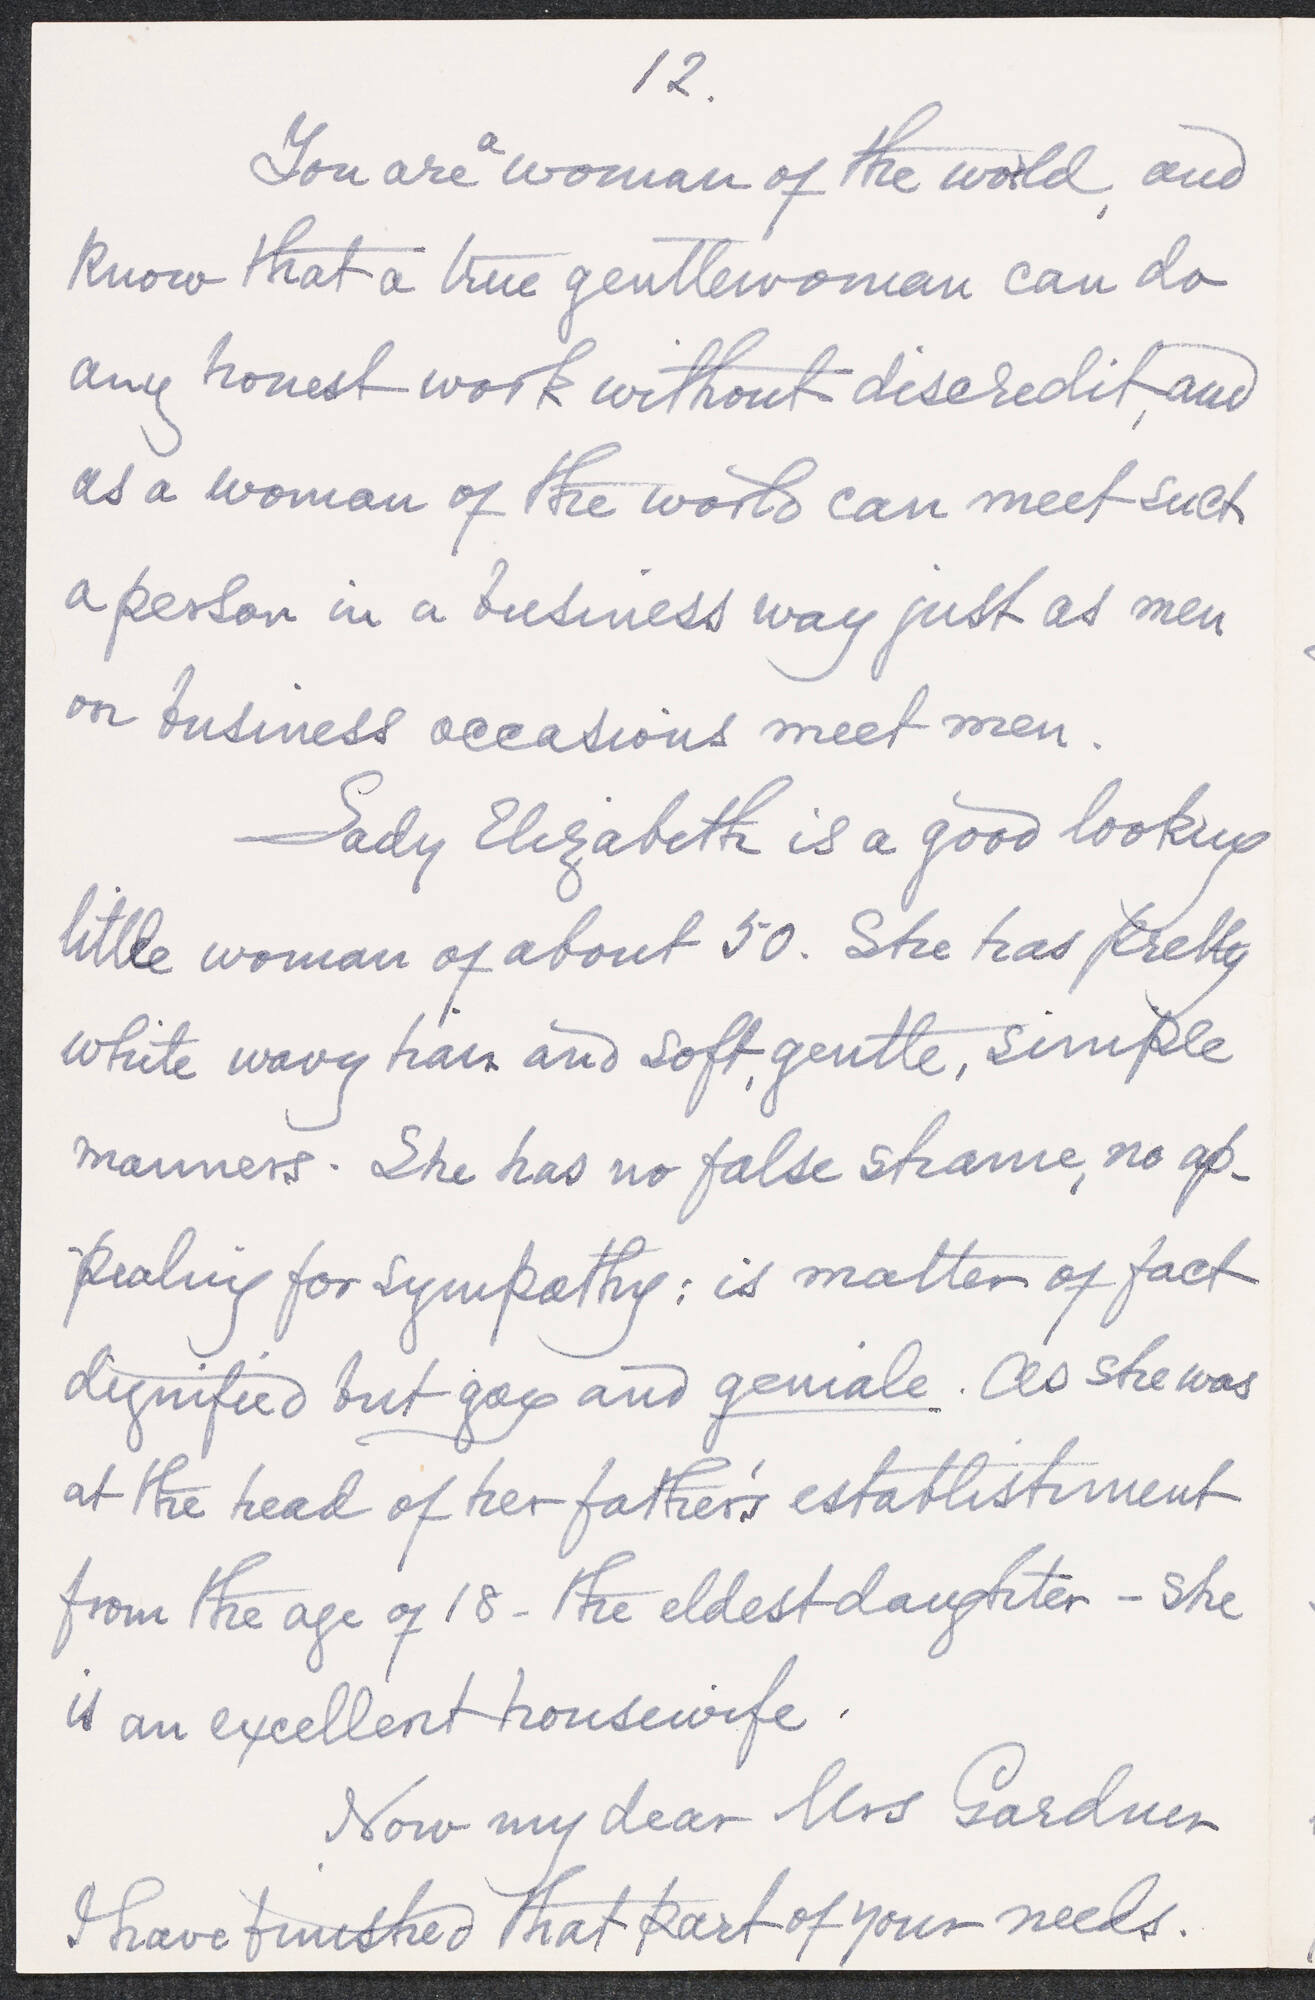 12.
You are a woman of the world, and
know that a true gentlewoman can do
any honest work without discredit, and
as a woman of the world can meet such
a person in a business way just as men
on business occasions meet men.
Lady Elizabeth is a good looking
little woman of about 50. She has pretty
white wavy hair and soft, gentle, simple
manners. She has no false shame, no ap-
-pealing for sympathy; is matter of fact
dignified but gay and geniale. As she was
at the head of her father's establishment
from the age of 18 - the eldest daughter - she
is an excellent housewife.
Now my dear Mrs Gardner
I have finished that part of your needs.